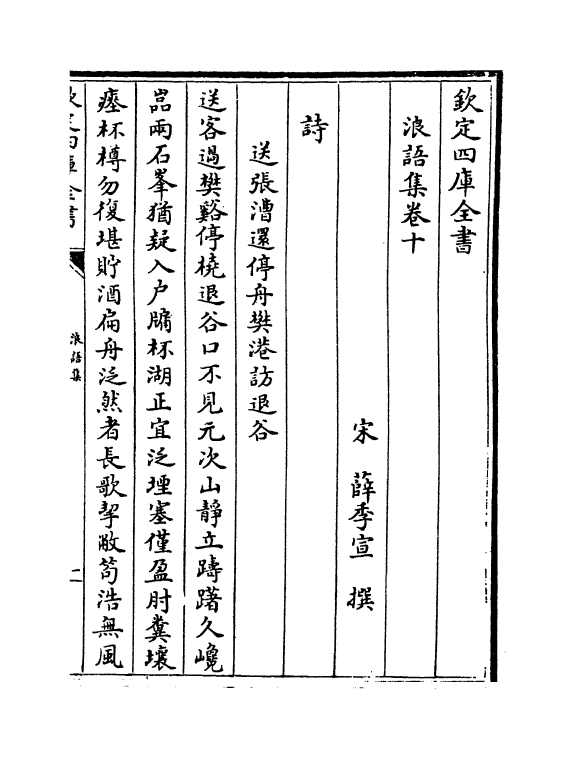 欽定四庫全書
浪語集卷十
宋 薛季宣 撰
詩
送張漕還停舟樊港訪退谷
送客過樊谿停橈退谷口不見元次山靜立躊躇久巉
嵓兩石峯猶疑入户牖杯湖正宜泛堙塞僅盈肘糞壤
瘞杯樽勿復堪貯酒扁舟泛然者長歌挈敝笱浩無風
欽定四庫全書
浪語集